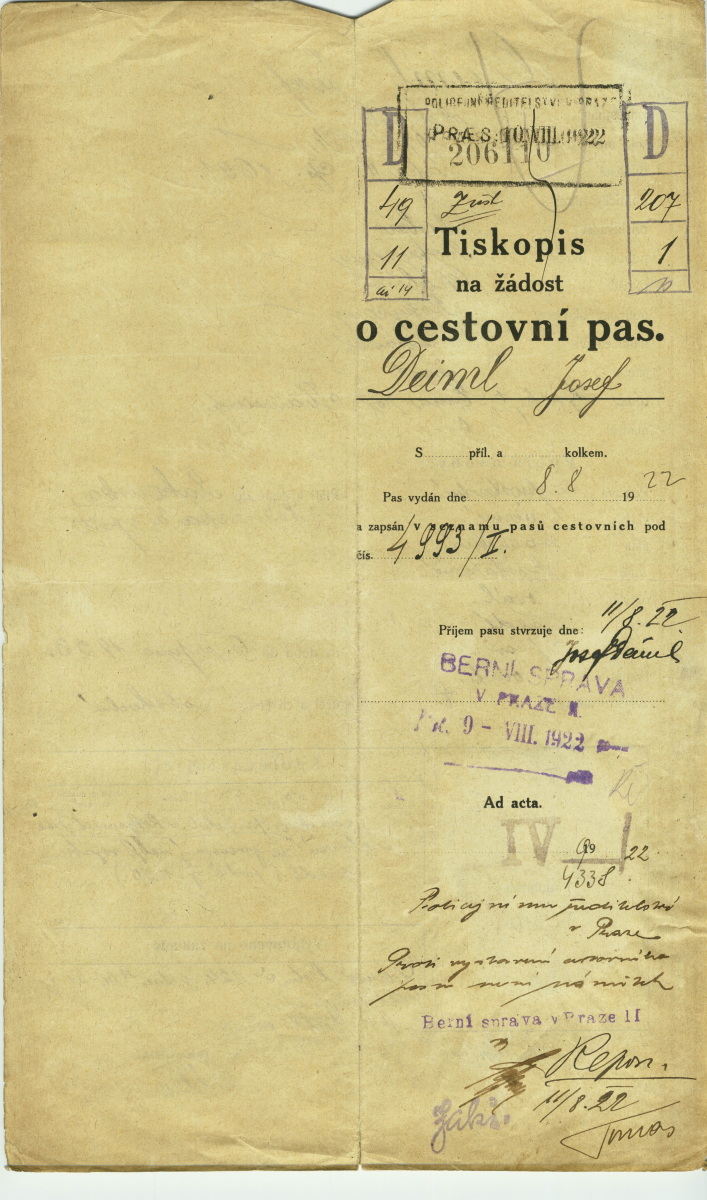 POLICEJNÍ ŘEDITELSTVÍ V PRAZE
PRÆS. 10. VIII. 1922
206110
D
49
11
D
207
1
Tiskopis
na žádost
o cestovní pas.
Deiml Josef
S příl. a kolkem.
Pas vydán dne 8. 8 1922
a zapsán v seznamu pasů cestovních pod
čís. 4993/II.
Příjem pasu stvrzuje dne: 11/8. 22
Josef Deiml
BERNÍ SPRÁVA
V PRAZE II.
9 - VIII. 1922
Ad acta.
IV 22
4338
Policejnímu ředitelství
v Praze
Proti vystavení cestovního
pasu není námitek
Berní správa v Praze II
Repon.
11/8. 22